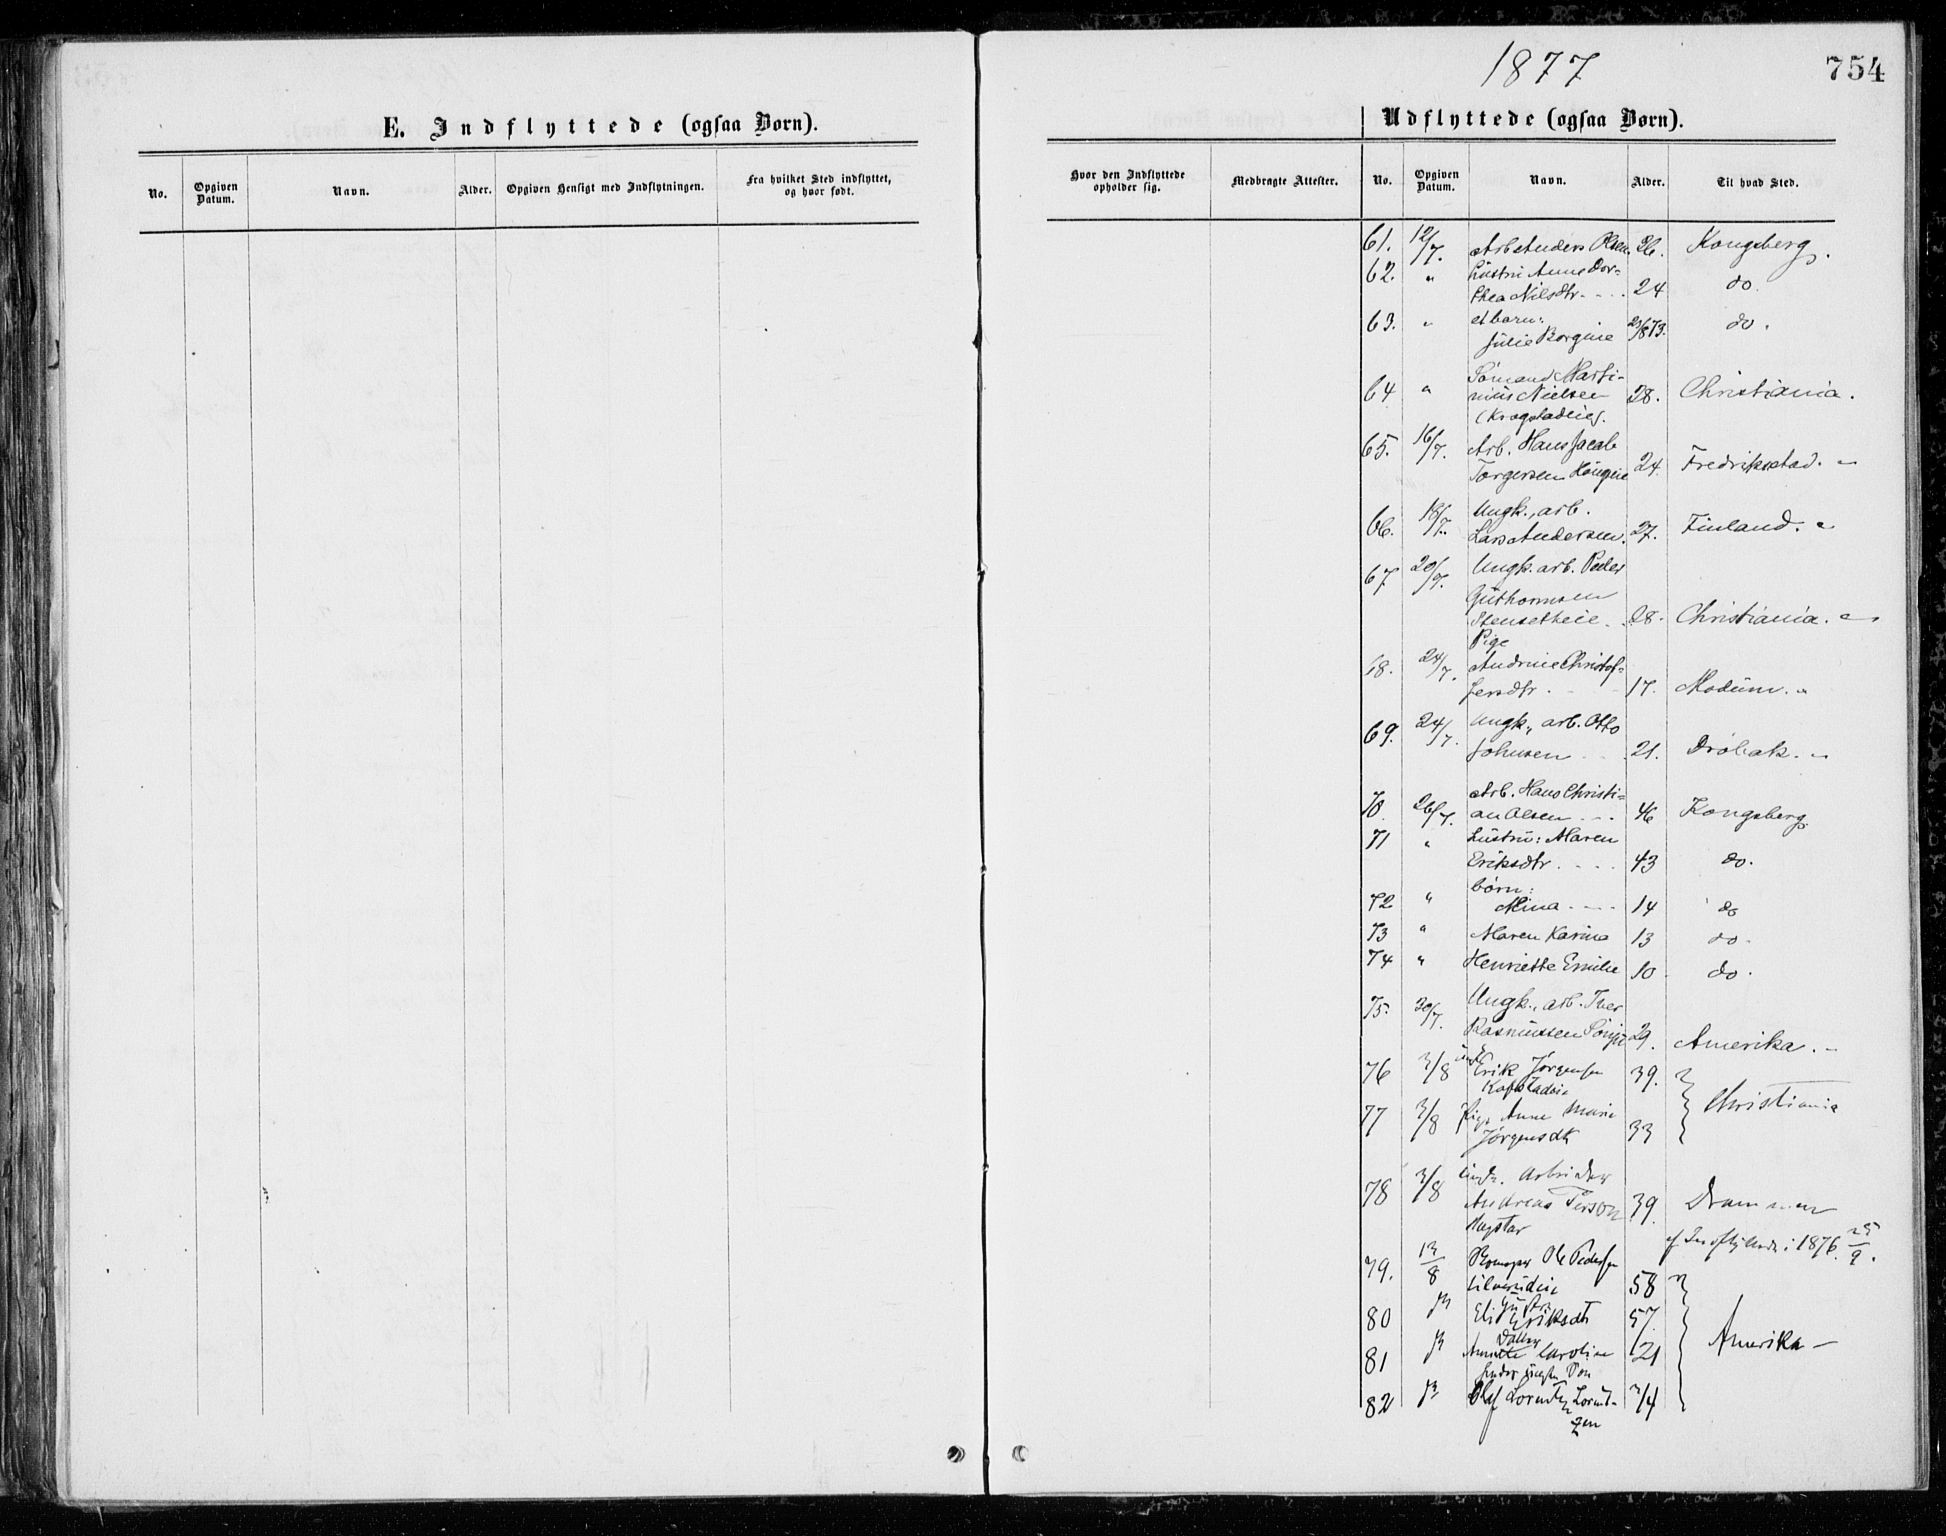 1877
754
E. Indflyttede (ogsaa Børn).
Udflyttede (ogsaa Børn).
No. Opgiven Datum. Navn. Alder. Opgiven Hensigt med Indflytningen. Fra hvilket Sted indflyttet, og hvor født.
Hvor den Indflyttede opholder sig. Medbragte Attester. No. Opgiven Datum. Navn. Alder. Til hvad Sted.
61. 12/7. Arb Anders Olsen. 26. Kongsberg.
62. " Hustru Anne Dor=
thea Nilsdtr. 24 do.
63. " et barn:
Julie Borgine /873. do.
64 " Sømand Marti-
nius Nielsen 28. Christiania.
65. 16/7. Arb. Hans Jacob
Torgersen 24. Fredrikstad. "
66. 18/7. Ungk., arb.
Lars Andersen. 27. Finland. "
67 20/7. Ungk. arb. Peder
Guthormsen
Stenseteie 28. Christiania. "
Pige
68. 24/7. Andrine Christof=
fersdtr. 17. Modum. "
69. 24/7. Ungk., arb. Otto
Johnsen 21. Drøbak. "
70. 26/7. Arb. Hans Christi=
an Olsen 46 Kongsberg
71 " Hustru: Maren
Eriksdtr. 43 do.
børn:
72 " Mina 14 do
73 " Maren Karina 13 do.
74 " Henriette Emilie 10 do.
75. 30/7. Ungk., arb. Iver
Rasmussen 29. Amerika. "
76 3/8 Erik Jørgensen 39.
77 3/8 Pige Anne Marie
Jørgensdt 33
Christiania
78 3/8 Arbeider
Andreas 39. Drammen
1876 25/9.
79. 13/8 Ole Pedersen
58
80 " Hustru
Eli Eriksdt 57
81 " Datter
Caroline 21
Amerika
82 " Olaf Lorentz Lorent-
zen 3/4